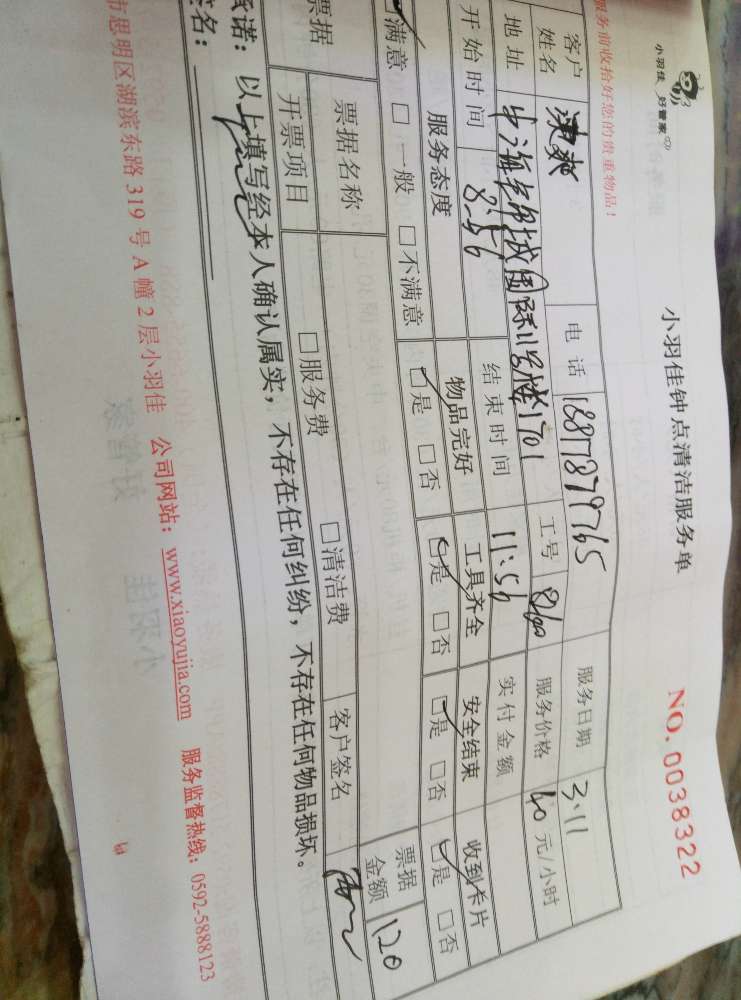 小羽佳 好管家
小羽佳钟点清洁服务单
NO. 0038322
服务前收拾好您的贵重物品！
客户姓名 电话 1887879765 服务日期 3.11
地址 中海 国际 1701 工号 服务价格 40 元/小时
开始时间 8:56 结束时间 11:56 实付金额
服务态度 物品完好 工具齐全 安全结束 收到卡片
满意 □ 一般 □ 不满意 □是 □否 □是 □否 □是 □否 □是 □否
票据 票据名称 □服务费 □清洁费 票据金额 120
开票项目 客户签名
承诺：以上填写经本人确认属实，不存在任何纠纷，不存在任何物品损坏。
签名：
市思明区湖滨东路 319 号 A 幢 2 层小羽佳 公司网站：www.xiaoyujia.com 服务监督热线：0592-5888123